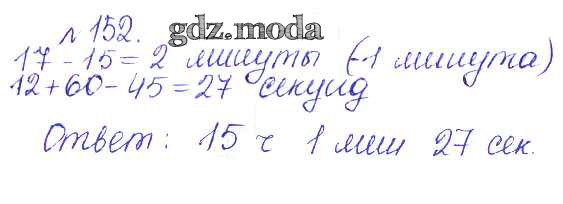 № 152. gdz.moda
17 - 15 = 2 минуты (-1 минута)
12 + 60 - 45 = 27 секунд
Ответ: 15 ч 1 мин 27 сек.